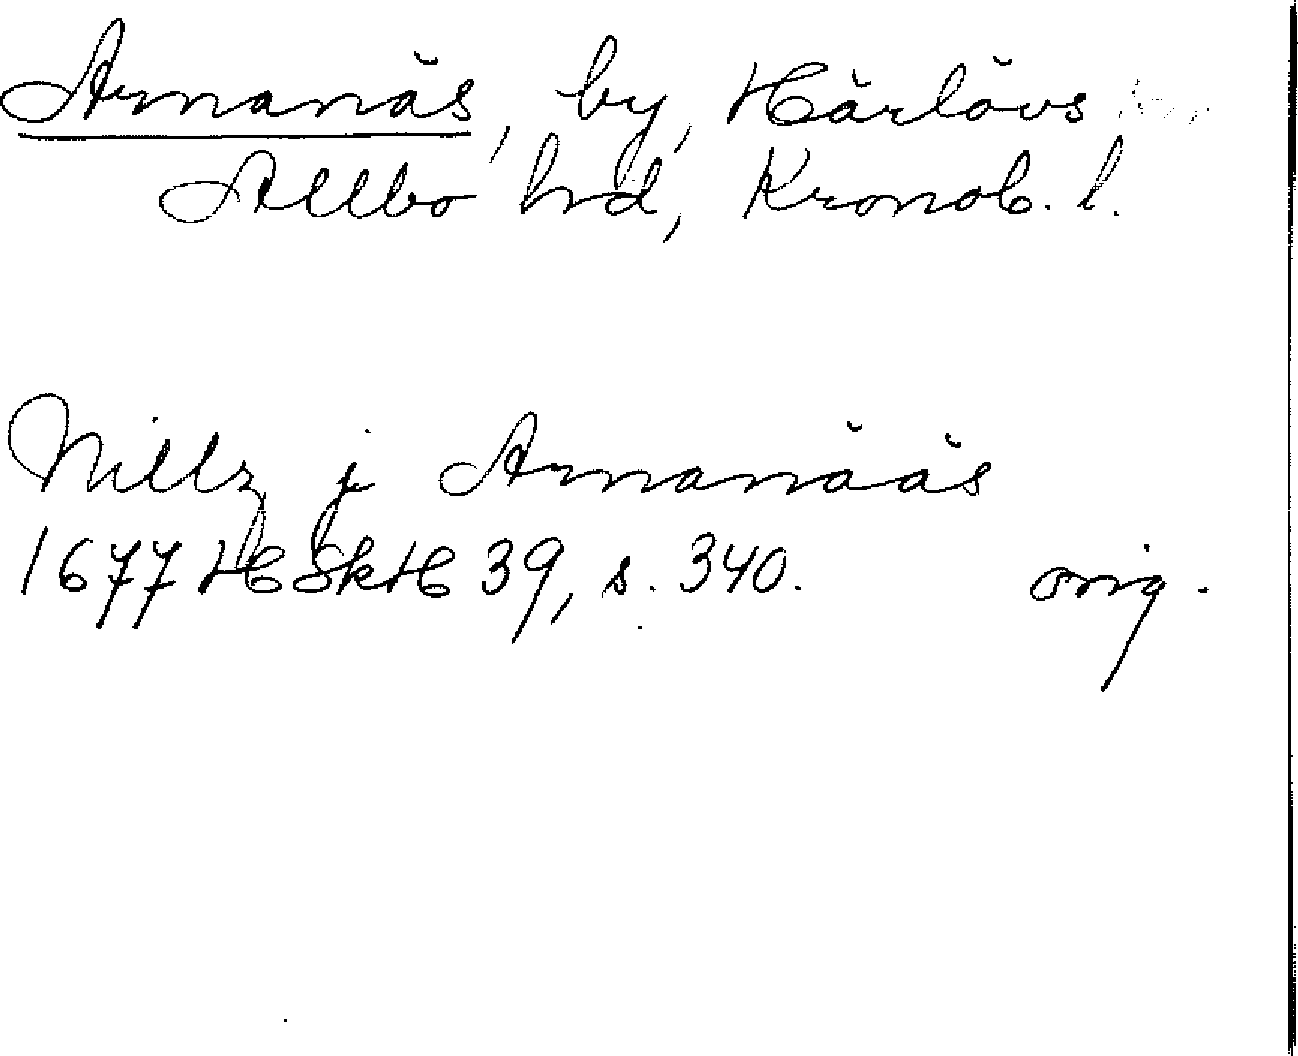 Arnanäs, by, Härlövs
Allbo hd, Kronob. l.
Nillz j Arnanääs
1677 HSkH 39, s. 340. orig.